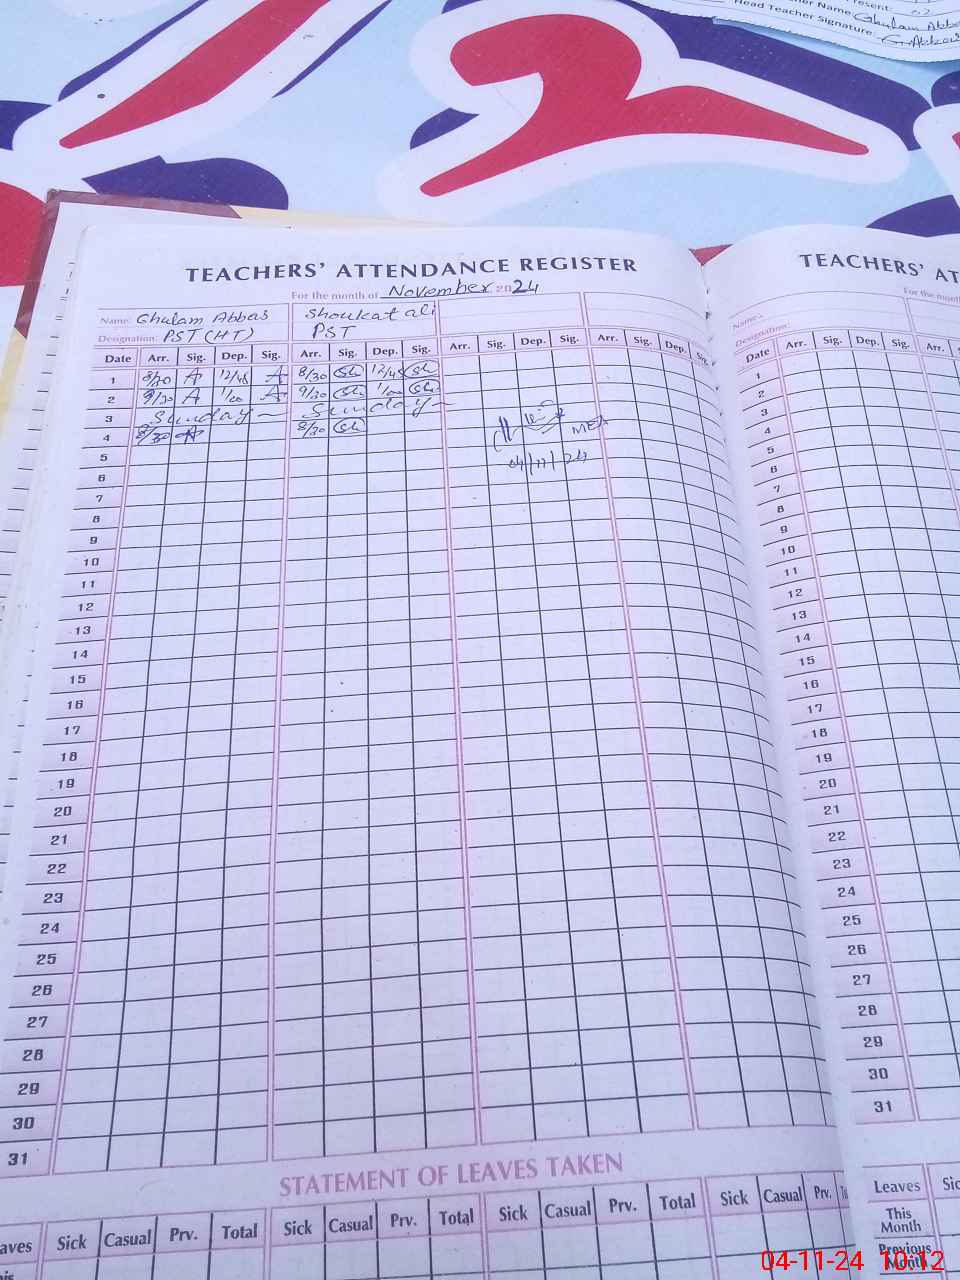 Present:
Teacher Name: Ghulam Abbas
Head Teacher Signature: G.Abbas
TEACHERS' ATTENDANCE REGISTER
For the month of November 2024
Name: Ghulam Abbas Shoukat ali
Designation: PST (HT) PST
Date Arr. Sig. Dep. Sig. Arr. Sig. Dep. Sig. Arr. Sig. Dep. Sig. Arr. Sig. Dep. Sig.
1 8/30 A 12/45 A 8/30 Sh 12/45 Sh
2 9/30 A 1/00 A 9/30 Sh 1/00 Sh
3 Sunday Sunday
4 8/30 A 8/30 Sh
MEA
04/11/24
5
6
7
8
9
10
11
12
13
14
15
16
17
18
19
20
21
22
23
24
25
26
27
28
29
30
31
STATEMENT OF LEAVES TAKEN
Sick Casual Prv. Total Sick Casual Prv. Total Sick Casual Prv. Total Sick Casual Prv.
TEACHERS' AT
For the month
Name:
Designation:
Date Arr. Sig. Dep. Sig. Arr.
1
2
3
4
5
6
7
8
9
10
11
12
13
14
15
16
17
18
19
20
21
22
23
24
25
26
27
28
29
30
31
Leaves
This
Month
Previous
Month
04-11-24 10:12